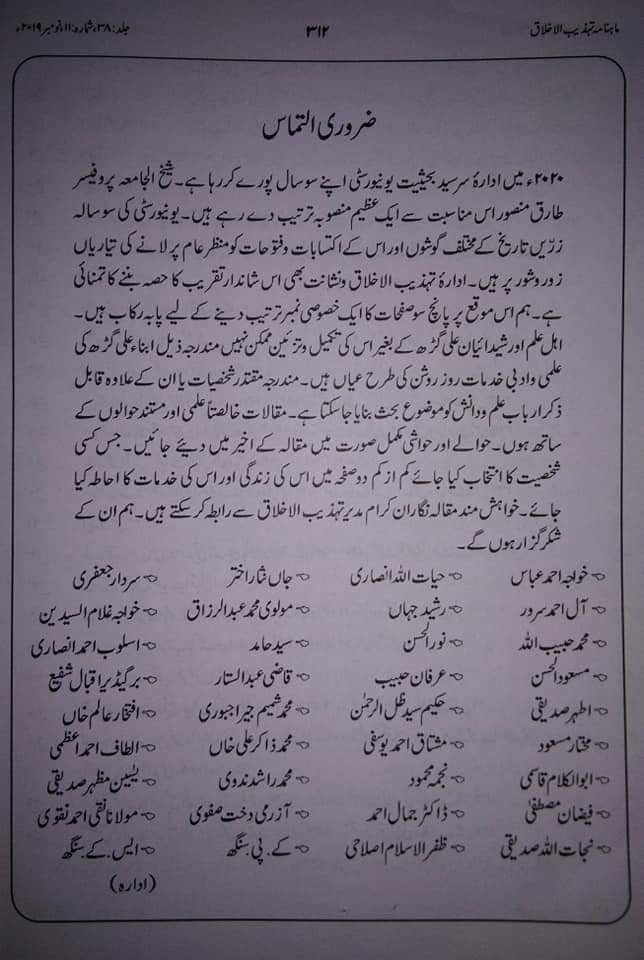 ماہنامہ تہذیب الاخلاق ۳۱۲ جلد: ۳۸، شمارہ: ۱۱، نومبر ۲۰۱۹ء
ضروری التماس
۲۰۲۰ء میں ادارۂ سرسید بحیثیت یونیورسٹی اپنے سو سال پورے کر رہا ہے۔ شیخ الجامعہ پروفیسر
طارق منصور اس مناسبت سے ایک عظیم منصوبہ ترتیب دے رہے ہیں۔ یونیورسٹی کی سو سالہ
زرّیں تاریخ کے مختلف گوشوں اور اس کے اکتسابات و فتوحات کو منظر عام پر لانے کی تیاریاں
زور و شور پر ہیں۔ ادارۂ تہذیب الاخلاق و نشانت بھی اس شاندار تقریب کا حصہ بننے کا تمنائی
ہے۔ ہم اس موقع پر پانچ سو صفحات کا ایک خصوصی نمبر ترتیب دینے کے لیے پابہ رکاب ہیں۔
اہل علم اور شیدائیان علی گڑھ کے بغیر اس کی تکمیل و تزئین ممکن نہیں مندرجہ ذیل ابناء علی گڑھ کی
علمی و ادبی خدمات روز روشن کی طرح عیاں ہیں۔ مندرجہ مقتدر شخصیات یا ان کے علاوہ قابل
ذکر ارباب علم و دانش کو موضوع بحث بنایا جا سکتا ہے۔ مقالات خالصتاً علمی اور مستند حوالوں کے
ساتھ ہوں۔ حوالے اور حواشی مکمل صورت میں مقالہ کے اخیر میں دیئے جائیں۔ جس کسی
شخصیت کا انتخاب کیا جائے کم از کم دو صفحہ میں اس کی زندگی اور اس کی خدمات کا احاطہ کیا
جائے۔ خواہش مند مقالہ نگاران کرام مدیر تہذیب الاخلاق سے رابطہ کر سکتے ہیں۔ ہم ان کے
شکر گزار ہوں گے۔
خواجہ احمد عباس حیات اللہ انصاری جاں نثار اختر سردار جعفری
آل احمد سرور رشید جہاں مولوی محمد عبدالرزاق خواجہ غلام السیدین
محمد حبیب اللہ نور الحسن سید حامد اسلوب احمد انصاری
مسعود الحسن عرفان حبیب قاضی عبدالستار برگیڈیر اقبال شفیع
اطہر صدیقی حکیم سید ظل الرحمٰن محمد شمیم جیراجپوری افتخار عالم خاں
مختار مسعود مشتاق احمد یوسفی محمد ذاکر علی خاں الطاف احمد اعظمی
ابوالکلام قاسمی نجمہ محمود محمد راشد ندوی یٰسین مظہر صدیقی
فیضان مصطفیٰ ڈاکٹر جمال احمد آزرمی دخت صفوی مولانا نقی احمد نقوی
نجات اللہ صدیقی ظفر الاسلام اصلاحی کے۔ پی سنگھ ایس۔ کے۔ سنگھ
(ادارہ)